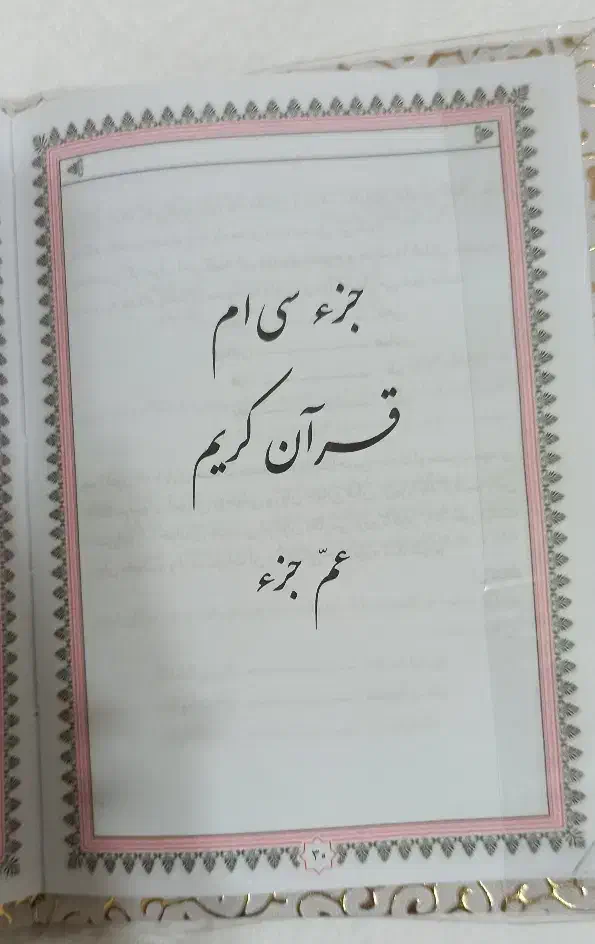 جزء سی ام
قرآن کریم
عمّ جزء
۳۰